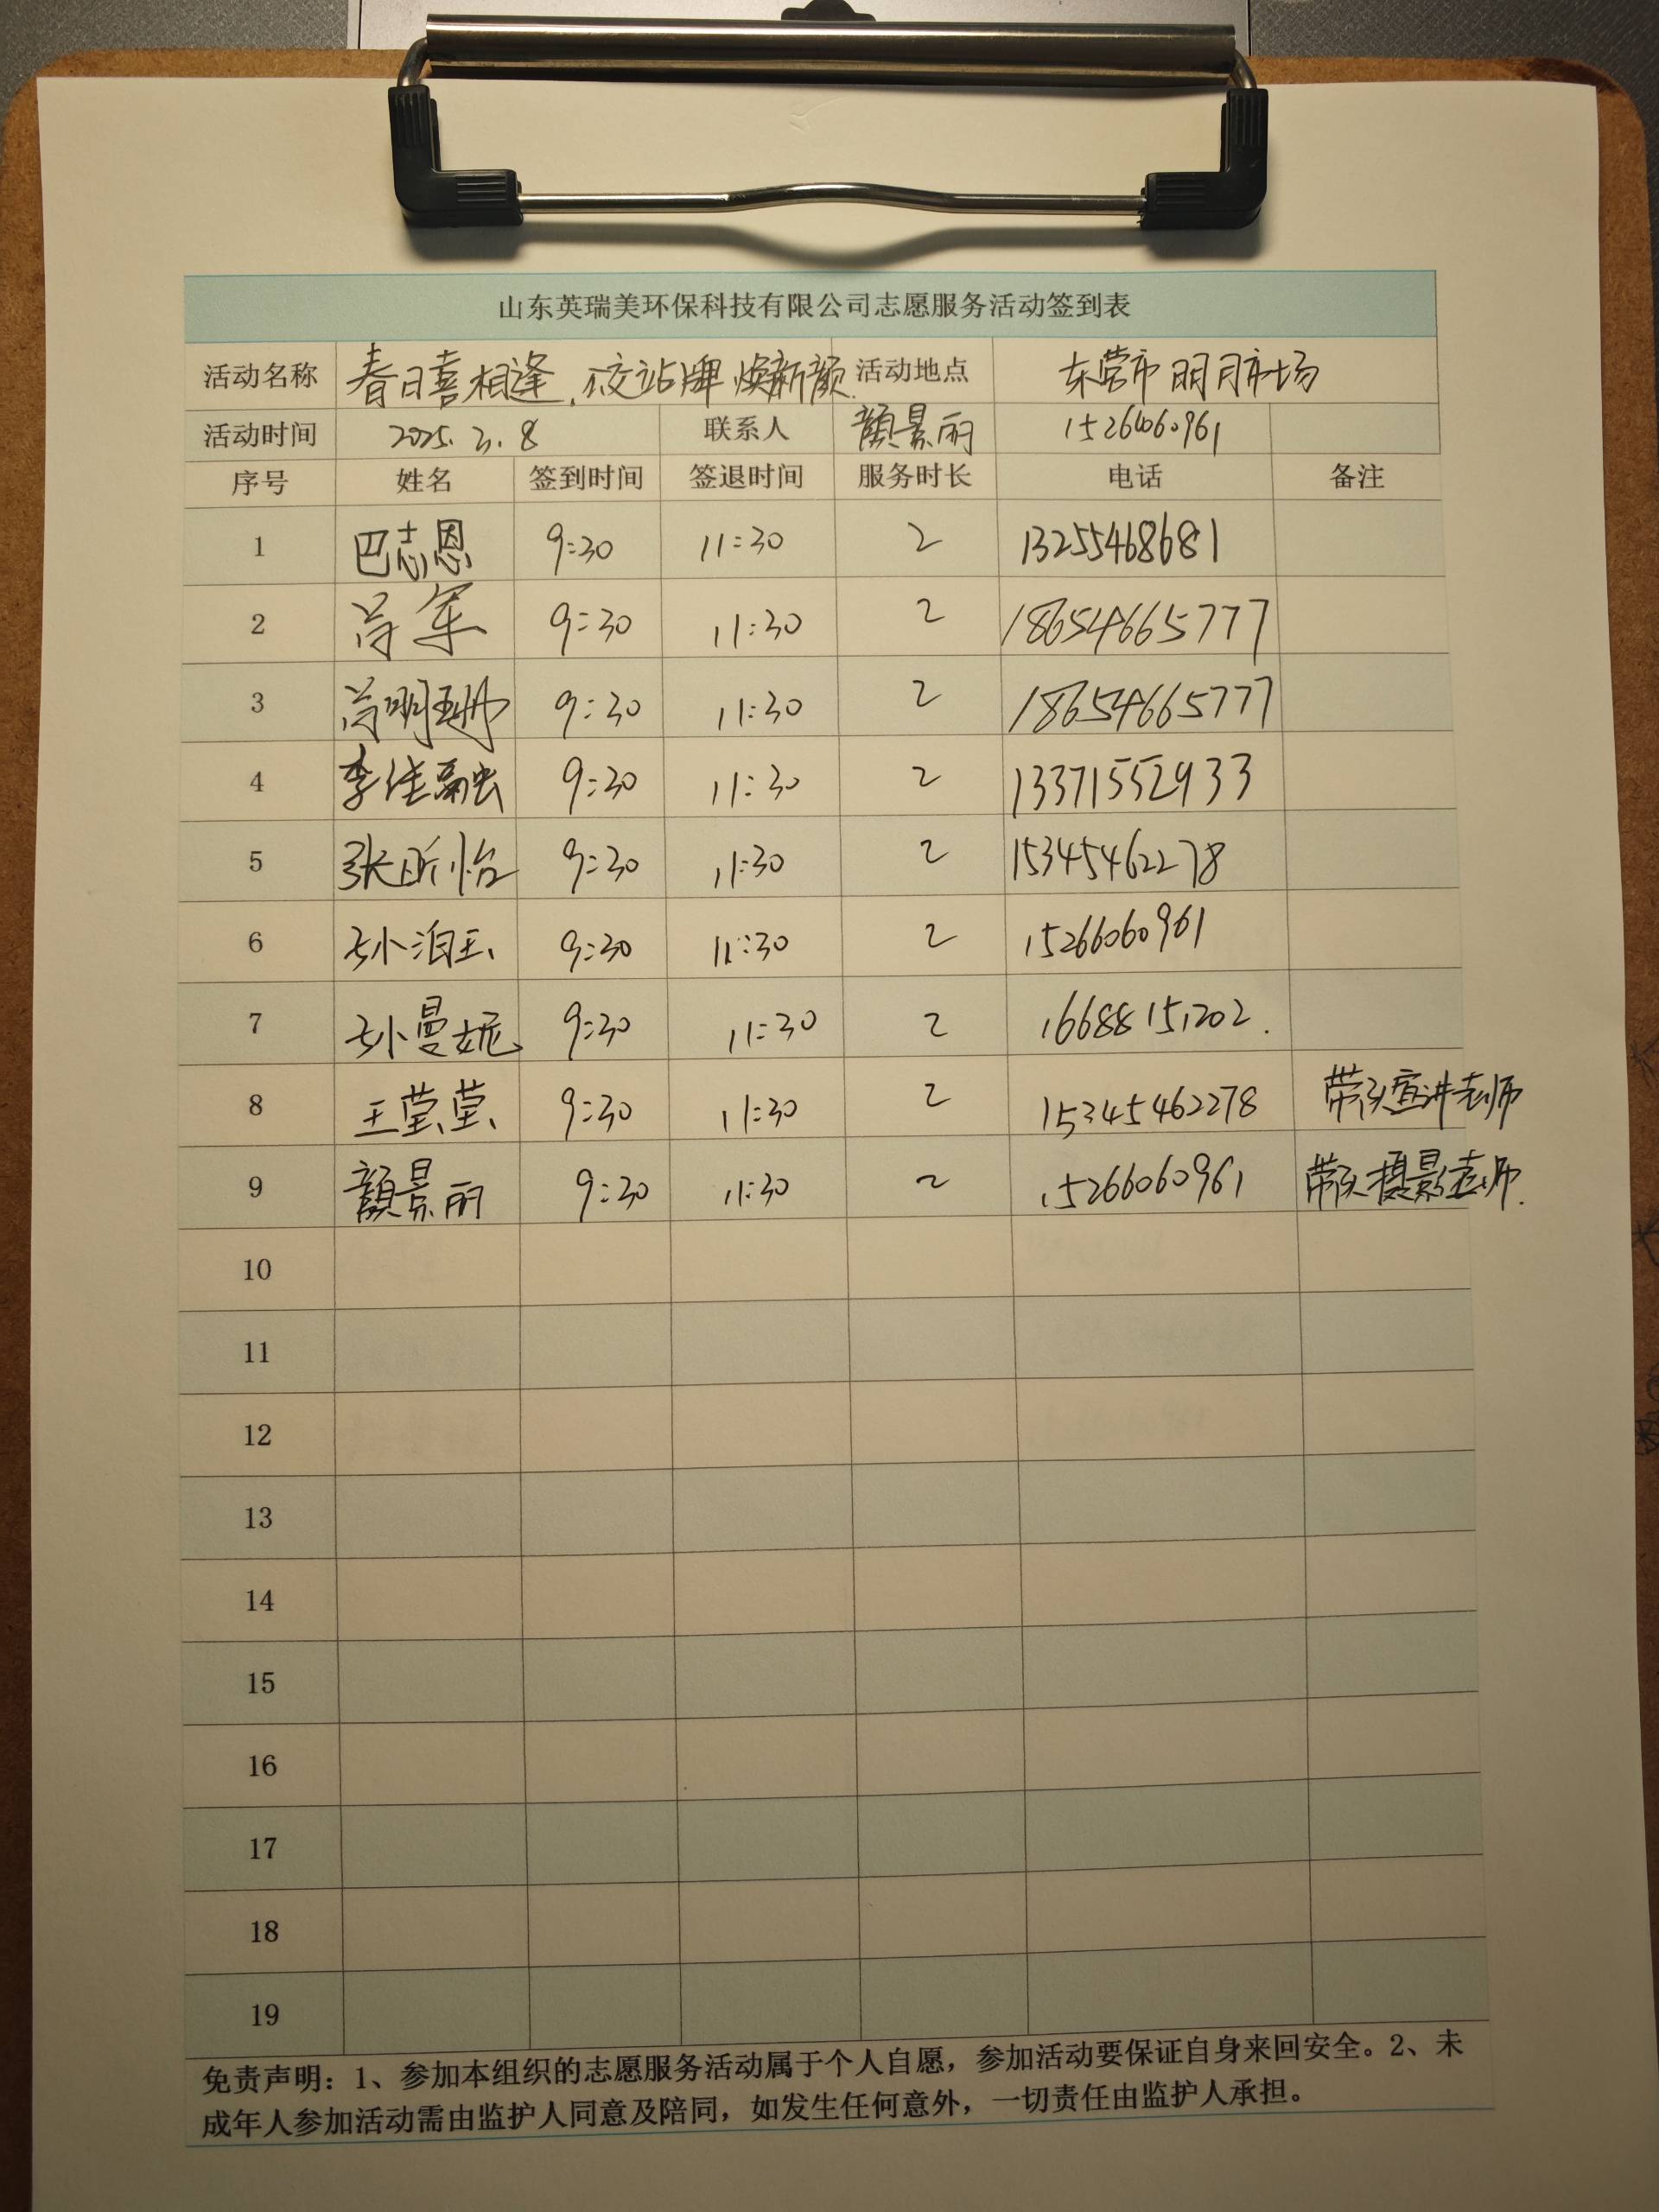 山东英瑞美环保科技有限公司志愿服务活动签到表
活动名称 春日喜相逢,交站牌焕新颜. 活动地点 东营市明月市场
活动时间 2025.3.8 联系人 颜景丽 15266060961
序号 姓名 签到时间 签退时间 服务时长 电话 备注
1 巴志恩 9:30 11:30 2 13255468681
2 尚军 9:30 11:30 2 18654665777
3 尚明珊 9:30 11:30 2 18654665777
4 李佳融 9:30 11:30 2 13371552933
5 张昕怡 9:30 11:30 2 15345462278
6 孙泊玉 9:30 11:30 2 15266060961
7 孙曼妮 9:30 11:30 2 16688151202.
8 王莹莹 9:30 11:30 2 15345462278 带队宣讲老师
9 颜景丽 9:30 11:30 2 15266060961 带队摄影老师.
10
11
12
13
14
15
16
17
18
19
免责声明:1、参加本组织的志愿服务活动属于个人自愿,参加活动要保证自身来回安全。2、未
成年人参加活动需由监护人同意及陪同,如发生任何意外,一切责任由监护人承担。